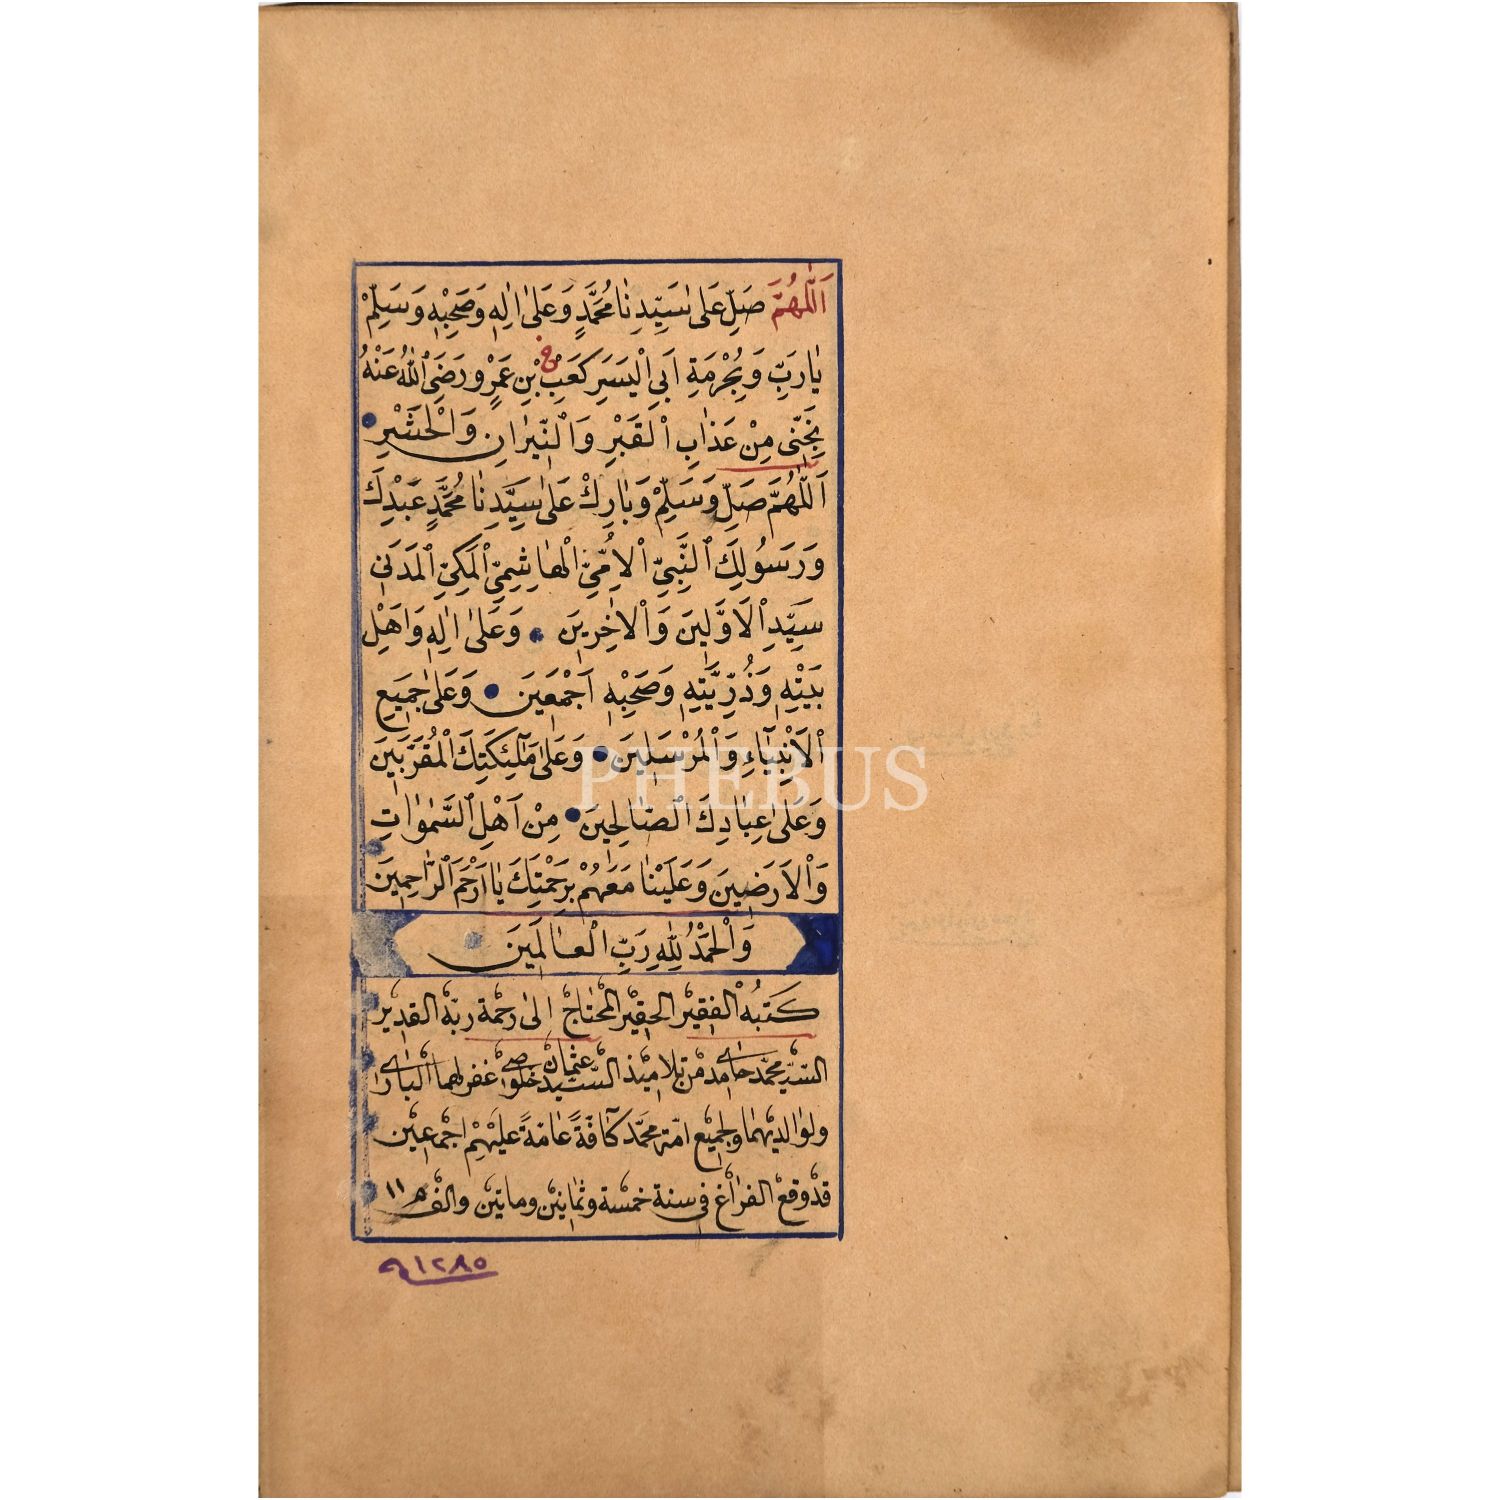 اَللّٰهُمَّ صَلِّ عَلٰى سَيِّدِنَا مُحَمَّدٍ وَعَلٰى اٰلِهٖ وَصَحْبِهٖ وَسَلِّمْ
يَارَبِّ وَبِحُرْمَةِ اَبِي الْيَسَرِ كَعْبِ بْنِ عَمْرٍو رَضِيَ اللّٰهُ عَنْهُ
نَجِّنِى مِنْ عَذَابِ الْقَبْرِ وَالنِّيرَانِ وَالْحَشْرِ
اَللّٰهُمَّ صَلِّ وَسَلِّمْ وَبَارِكْ عَلٰى سَيِّدِنَا مُحَمَّدٍ عَبْدِكَ
وَرَسُولِكَ النَّبِيِّ الْاُمِّيِّ الْهَاشِمِيِّ الْمَكِّيِّ الْمَدَنِيِّ
سَيِّدِ الْاَوَّلِينَ وَالْاٰخِرِينَ وَعَلٰى اٰلِهٖ وَاَهْلِ
بَيْتِهٖ وَذُرِّيَّتِهٖ وَصَحْبِهٖ اَجْمَعِينَ وَعَلٰى جَمِيعِ
الْاَنْبِيَاءِ وَالْمُرْسَلِينَ وَعَلٰى مَلٰئِكَتِكَ الْمُقَرَّبِينَ
وَعَلٰى عِبَادِكَ الصَّالِحِينَ مِنْ اَهْلِ السَّمٰوَاتِ
وَالْاَرَضِينَ وَعَلَيْنَا مَعَهُمْ بِرَحْمَتِكَ يَا اَرْحَمَ الرَّاحِمِينَ
PHEBUS
وَالْحَمْدُ لِلّٰهِ رَبِّ الْعَالَمِينَ
كَتَبَهُ الْفقير الحقير المحتاج الى رحمة ربه القدير
السيد محمد حامد من تلاميذ السيد عثمان خلوصى غفر لهما البارى
ولوالديهما ولجميع امة محمد كافةً عامةً عليهم اجمعين
قد وقع الفراغ فى سنة خمسة وثمانين ومأتين والف ١١
١٢٨٥